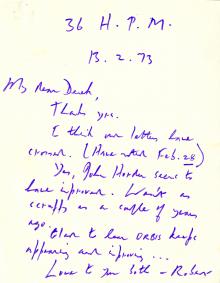 36 H. P. M.
13. 2. 73
My dear Derek,
Thank you.
I think our letters have
crossed. (Have noted Feb. 28)
Yes, John Horder seems to
have improved. Wasn't as
scruffy as a couple of years
ago.
Glad to have ORBIS keeps
appearing and improving...
Love to you both - Robert